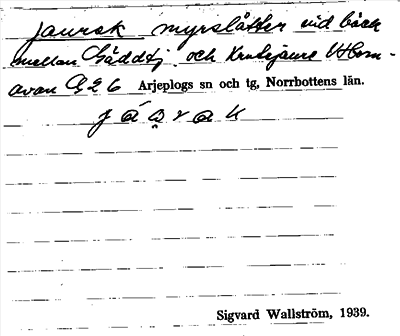 jaurak myrslåtter vid bäck
mellan Gäddtj. och
avan G26 Arjeplogs sn och tg, Norrbottens län.
Sigvard Wallström, 1939.